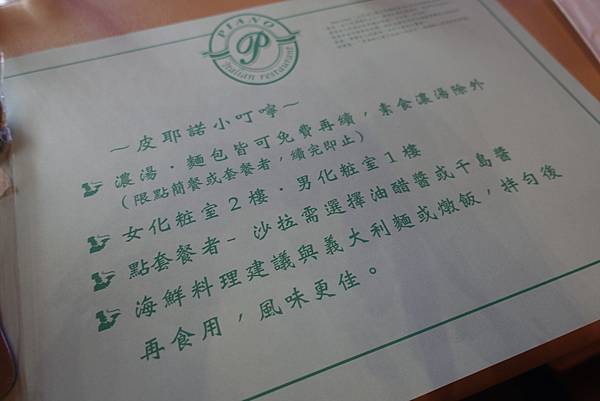 PIANO
P
Italian restaurant
～皮耶諾小叮嚀～
濃湯．麵包皆可免費再續，素食濃湯除外
（限點簡餐或套餐者，續完即止）
女化粧室2樓．男化粧室1樓
點套餐者－沙拉需選擇油醋醬或千島醬
海鮮料理建議與義大利麵或燉飯，拌勻後
再食用，風味更佳。